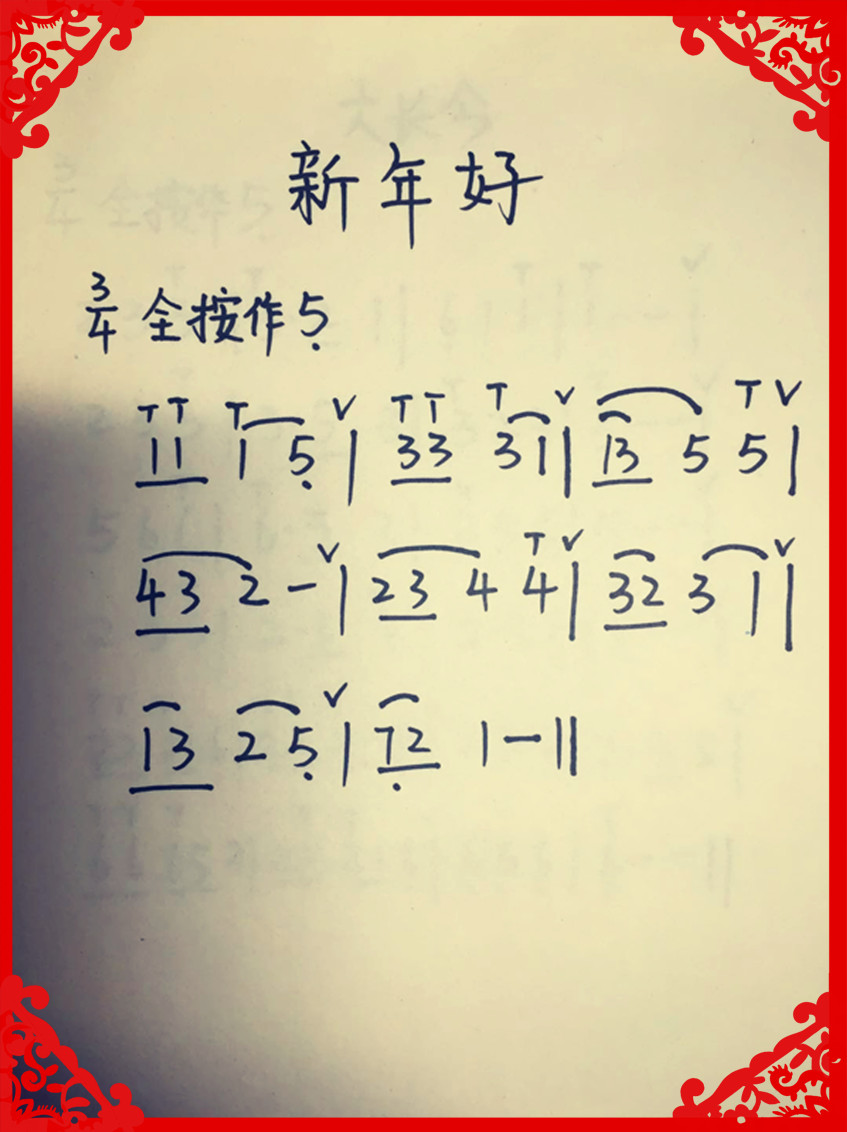 新年好
3/4 全按作5̣
TT T V TT T V T V
11 1 5̣ | 33 3 1 | 13 5 5 |
V T V V
43 2 - | 23 4 4 | 32 3 1 |
V
13 2 5̣ | 7̣2 1 - ||